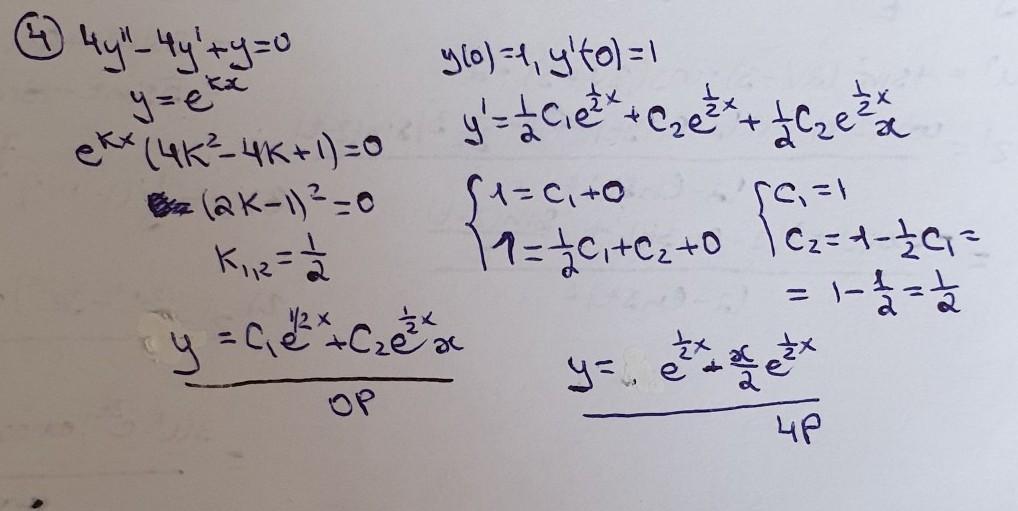 ④ 4y'' - 4y' + y = 0
y = e^{kx}
e^{kx} (4k² - 4k + 1) = 0
(2k - 1)² = 0
k_{1,2} = 1/2
y = C₁e^{1/2 x} + C₂e^{1/2 x} x
ОР
y(0) = 1, y'(0) = 1
y' = 1/2 C₁e^{1/2 x} + C₂e^{1/2 x} + 1/2 C₂e^{1/2 x} x
{ 1 = C₁ + 0 { C₁ = 1
1 = 1/2 C₁ + C₂ + 0 C₂ = 1 - 1/2 C₁ =
= 1 - 1/2 = 1/2
y = e^{1/2 x} + x/2 e^{1/2 x}
ЧР